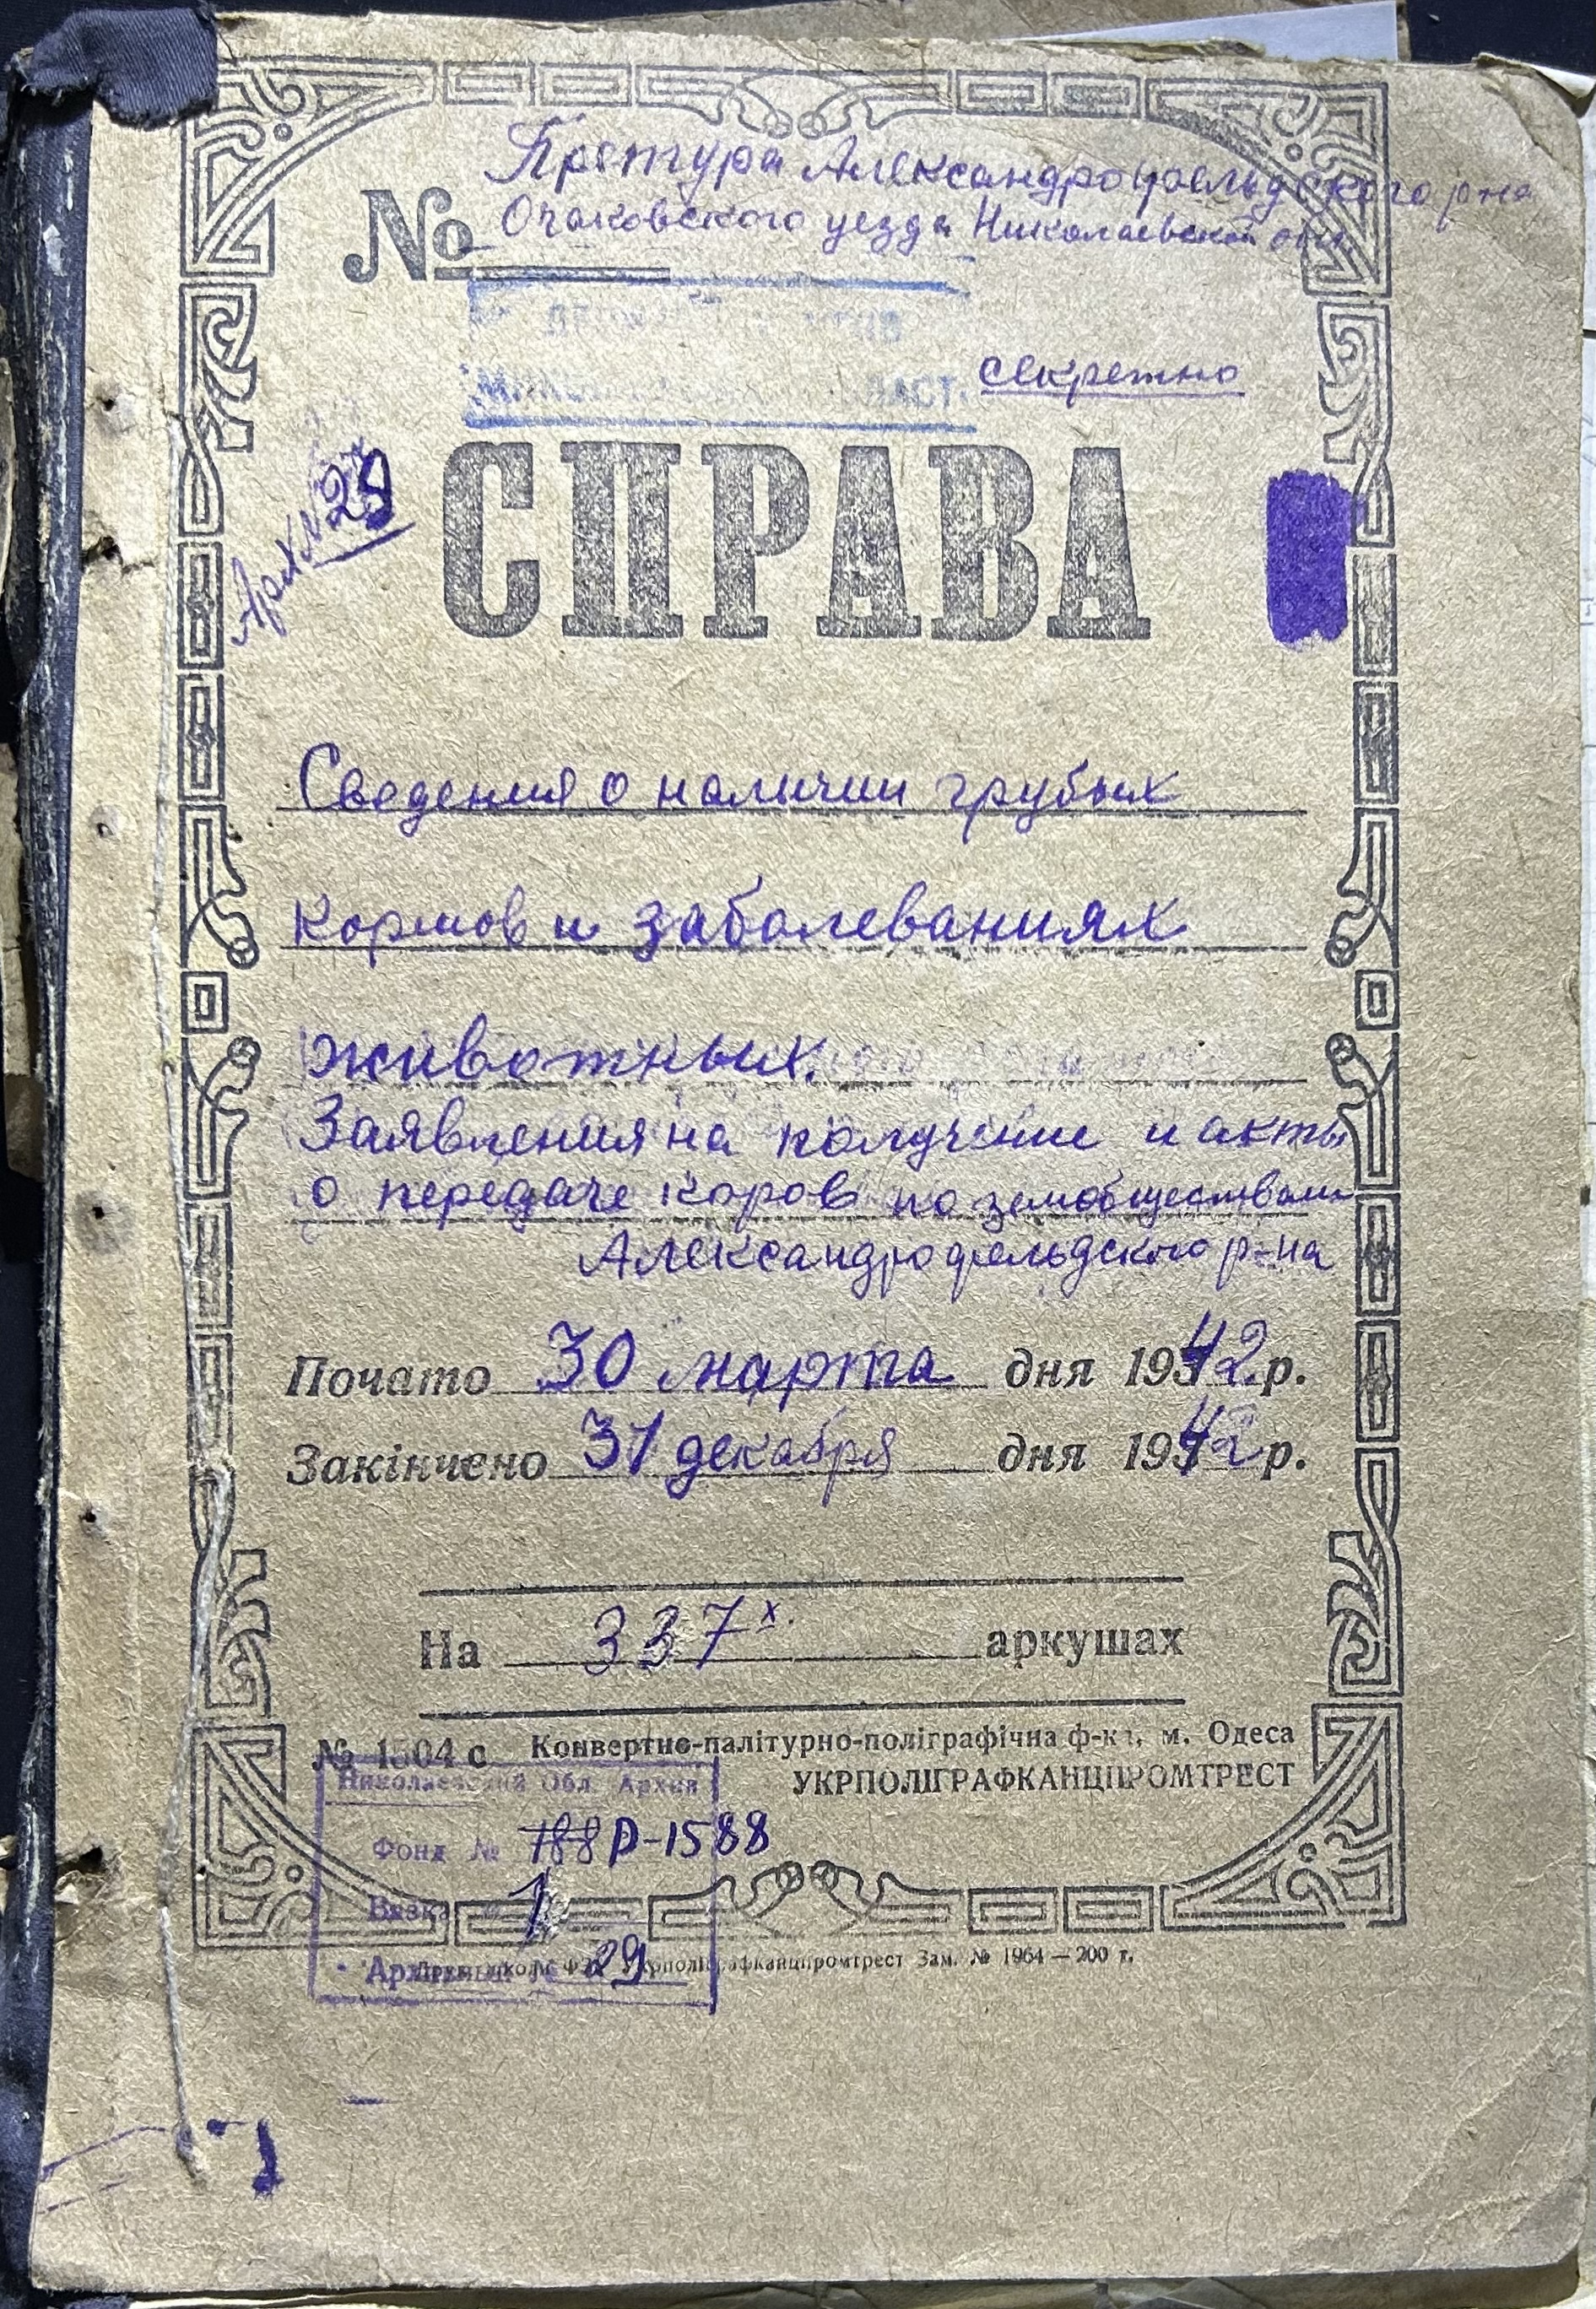 Претура Александрофельдского р-на
Очаковского уезда Николаевской обл.
№
секретно
Арх №29
СПРАВА
Сведения о наличии грубых
кормов и заболеваниях
животных.
Заявления на получение и акты
о передаче коров по земобществам
Александрофельдского р-на
Почато 30 марта дня 1942 р.
Закінчено 31 декабря дня 1942 р.
На 337х. аркушах
№ 1504 с Конвертно-палітурно-поліграфічна ф-ка, м. Одеса
УКРПОЛІГРАФКАНЦПРОМТРЕСТ
Николаевский Обл. Архив
Фонд № 788 Р-1588
Вязка 1
29
Укрполіграфканцпромтрест Зам. № 1964 — 200 т.